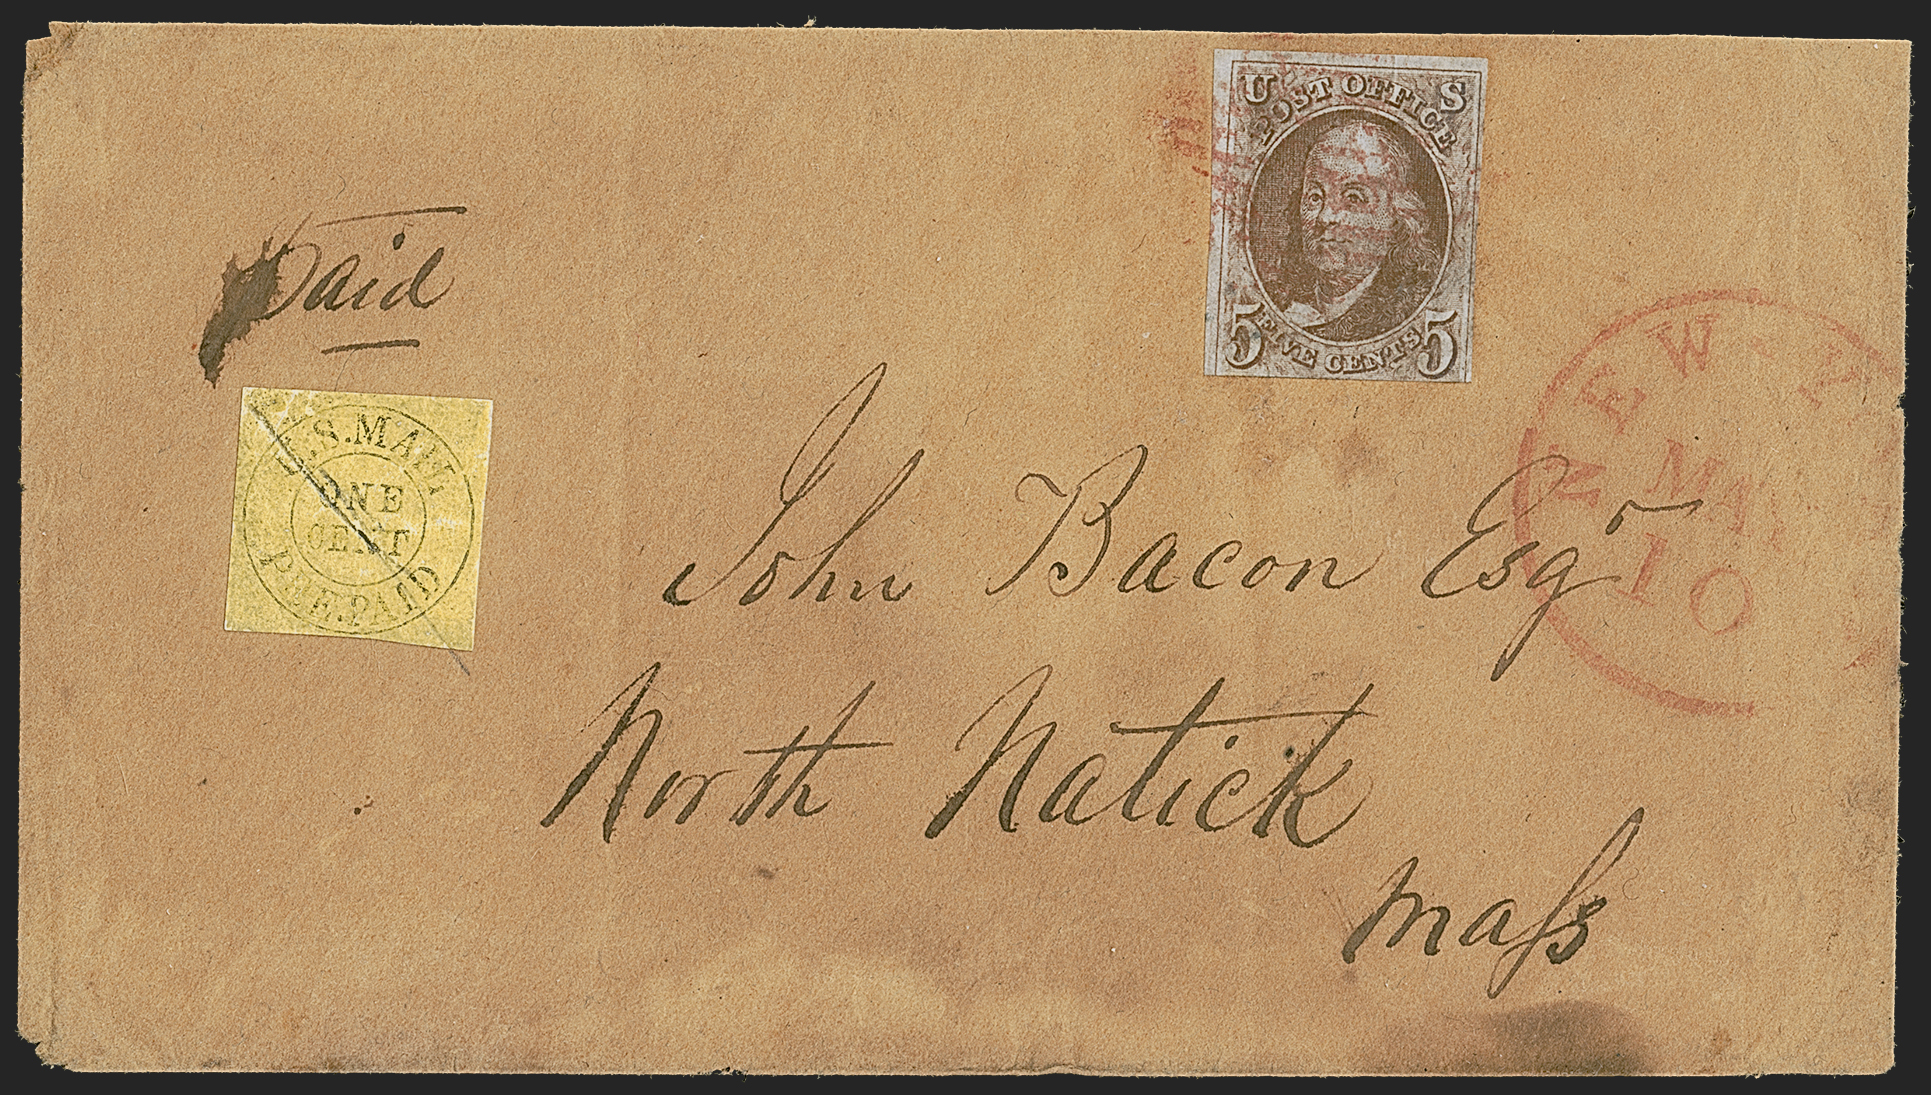 U S
POST OFFICE
5 FIVE CENTS 5
Paid
U.S. MAIL
ONE
CENT
PRE.PAID
NEW-Y
MAY
10
John Bacon Esqr
North Natick
Maſs